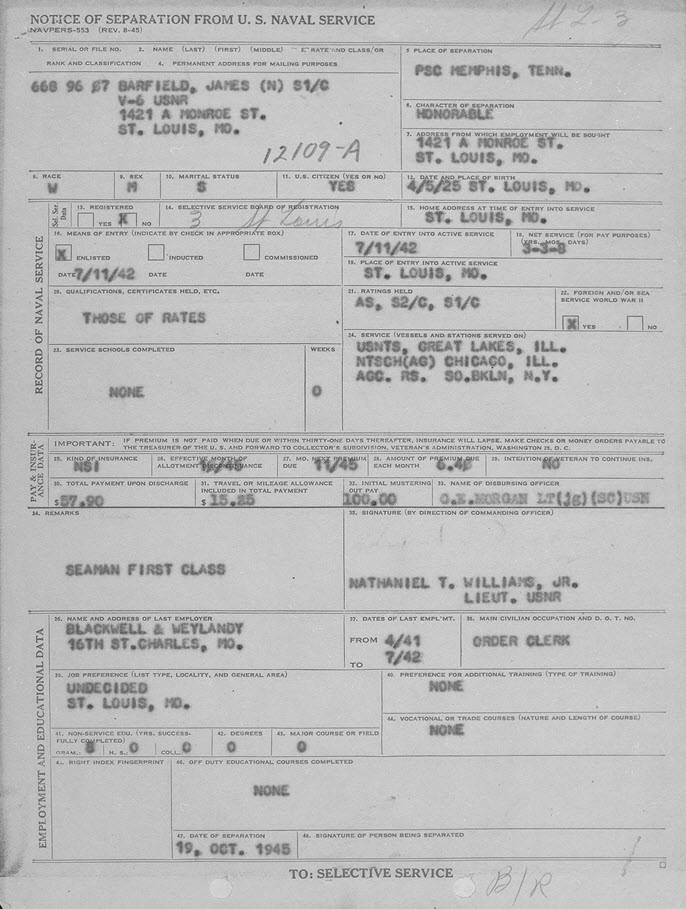 NOTICE OF SEPARATION FROM U. S. NAVAL SERVICE
NAVPERS-553 (REV. 8-45)
St L - 3
1. SERIAL OR FILE NO. 2. NAME (LAST) (FIRST) (MIDDLE) 3. RATE AND CLASS/OR
RANK AND CLASSIFICATION 4. PERMANENT ADDRESS FOR MAILING PURPOSES
668 96 07 BARFIELD, JAMES (N) S1/C
V-6 USNR
1421 A MONROE ST.
ST. LOUIS, MO.
12109-A
5 PLACE OF SEPARATION
PSC MEMPHIS, TENN.
6. CHARACTER OF SEPARATION
HONORABLE
7. ADDRESS FROM WHICH EMPLOYMENT WILL BE SOUGHT
1421 A MONROE ST.
ST. LOUIS, MO.
8. RACE
W
9. SEX
M
10. MARITAL STATUS
S
11. U.S. CITIZEN (YES OR NO)
YES
12. DATE AND PLACE OF BIRTH
4/5/25 ST. LOUIS, MO.
Sel. Ser. Data
13. REGISTERED
YES X NO
14. SELECTIVE SERVICE BOARD OF REGISTRATION
3 St Louis
15. HOME ADDRESS AT TIME OF ENTRY INTO SERVICE
ST. LOUIS, MO.
RECORD OF NAVAL SERVICE
16. MEANS OF ENTRY (INDICATE BY CHECK IN APPROPRIATE BOX)
X ENLISTED INDUCTED COMMISSIONED
DATE 7/11/42 DATE DATE
17. DATE OF ENTRY INTO ACTIVE SERVICE
7/11/42
18. NET SERVICE (FOR PAY PURPOSES)
(YRS. MOS. DAYS)
3-3-8
19. PLACE OF ENTRY INTO ACTIVE SERVICE
ST. LOUIS, MO.
20. QUALIFICATIONS, CERTIFICATES HELD, ETC.
THOSE OF RATES
21. RATINGS HELD
AS, S2/C, S1/C
22. FOREIGN AND/OR SEA
SERVICE WORLD WAR II
X YES NO
23. SERVICE SCHOOLS COMPLETED
NONE
WEEKS
0
24. SERVICE (VESSELS AND STATIONS SERVED ON)
USNTS, GREAT LAKES, ILL.
NTSCH(AG) CHICAGO, ILL.
AGC. RS. SO.BKLN, N.Y.
PAY & INSURANCE DATA
IMPORTANT: IF PREMIUM IS NOT PAID WHEN DUE OR WITHIN THIRTY-ONE DAYS THEREAFTER, INSURANCE WILL LAPSE. MAKE CHECKS OR MONEY ORDERS PAYABLE TO
THE TREASURER OF THE U. S. AND FORWARD TO COLLECTOR'S SUBDIVISION, VETERAN'S ADMINISTRATION, WASHINGTON 25, D. C.
25. KIND OF INSURANCE
NSI
26. EFFECTIVE MONTH OF
ALLOTMENT DISCONTINUANCE
27. MO. NEXT PREMIUM
DUE 11/45
28. AMOUNT OF PREMIUM DUE
EACH MONTH 6.40
29. INTENTION OF VETERAN TO CONTINUE INS.
NO
30. TOTAL PAYMENT UPON DISCHARGE
$57.90
31. TRAVEL OR MILEAGE ALLOWANCE
INCLUDED IN TOTAL PAYMENT
$ 15.25
32. INITIAL MUSTERING
OUT PAY
100.00
33. NAME OF DISBURSING OFFICER
G.E.MORGAN LT(jg)(SC)USN
34. REMARKS
SEAMAN FIRST CLASS
35. SIGNATURE (BY DIRECTION OF COMMANDING OFFICER)
NATHANIEL T. WILLIAMS, JR.
LIEUT. USNR
EMPLOYMENT AND EDUCATIONAL DATA
36. NAME AND ADDRESS OF LAST EMPLOYER
BLACKWELL & WEYLANDY
16TH ST.CHARLES, MO.
37. DATES OF LAST EMPL'MT.
FROM 4/41
TO 7/42
38. MAIN CIVILIAN OCCUPATION AND D. O. T. NO.
ORDER CLERK
39. JOB PREFERENCE (LIST TYPE, LOCALITY, AND GENERAL AREA)
UNDECIDED
ST. LOUIS, MO.
40. PREFERENCE FOR ADDITIONAL TRAINING (TYPE OF TRAINING)
NONE
41. NON-SERVICE EDU. (YRS. SUCCESS-
FULLY COMPLETED)
GRAM.: 8 H. S.: 0 COLL. 0
42. DEGREES
0
43. MAJOR COURSE OR FIELD
0
44. VOCATIONAL OR TRADE COURSES (NATURE AND LENGTH OF COURSE)
NONE
RIGHT INDEX FINGERPRINT
46. OFF DUTY EDUCATIONAL COURSES COMPLETED
NONE
47. DATE OF SEPARATION
19, OCT. 1945
48. SIGNATURE OF PERSON BEING SEPARATED
TO: SELECTIVE SERVICE
B/R